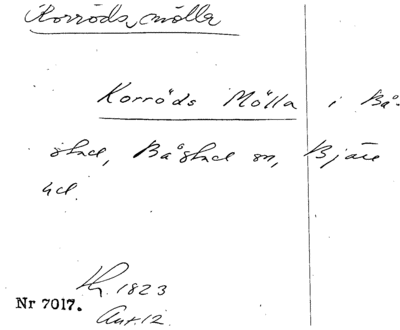 Korröds mölla
Korröds Mölla i Bå-
stad, Båstad sn, Bjäre
hd.
Th. 1823
Nr 7017.
Ant. 12.